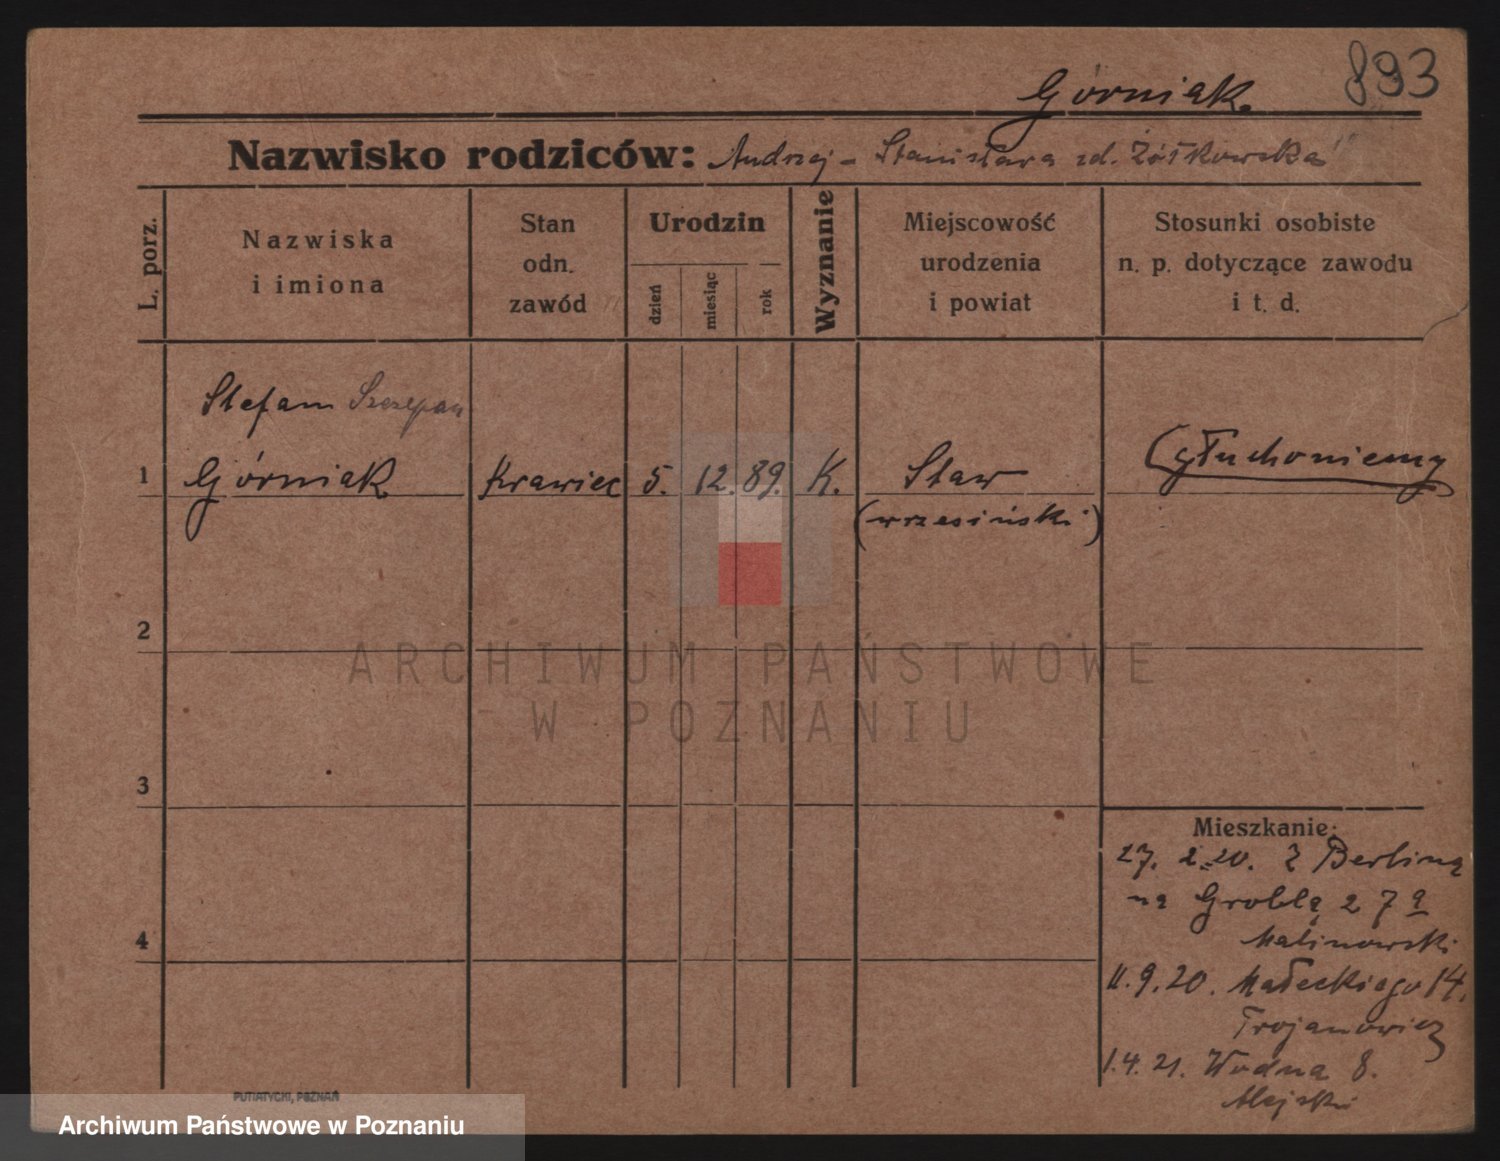 893
Górniak.
Nazwisko rodziców: Andrzej - Stanisława zd. Żółkowska
L. porz.
Nazwiska
i imiona
Stan
odn.
zawód
Urodzin
dzień
miesiąc
rok
Wyznanie
Miejscowość
urodzenia
i powiat
Stosunki osobiste
n. p. dotyczące zawodu
i t. d.
Stefan Szczepan
1 Górniak Krawiec 5. 12. 89. K. Staw (głuchoniemy
(wrzesiński)
2
3
4
ARCHIWUM PAŃSTWOWE
W POZNANIU
Mieszkanie:
27. 2. 20. Z Berlina
na Groblą 27a
Malinowski
11. 9. 20. Małeckiego 14.
Trojanowicz
1. 4. 21. Wodna 8.
PUTIATYCKI, POZNAŃ
Archiwum Państwowe w Poznaniu